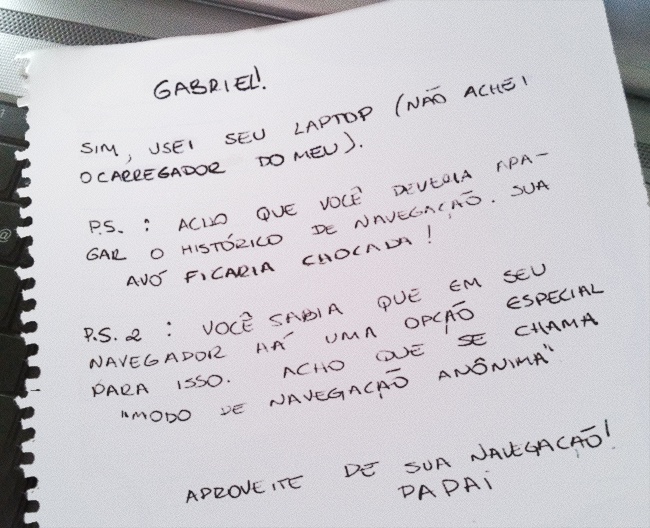 GABRIEL!
SIM, USEI SEU LAPTOP (NÃO ACHEI
O CARREGADOR DO MEU).
P.S. : ACHO QUE VOCÊ DEVERIA APA-
GAR O HISTÓRICO DE NAVEGAÇÃO. SUA
AVÓ FICARIA CHOCADA!
P.S. 2 : VOCÊ SABIA QUE EM SEU
NAVEGADOR HÁ UMA OPÇÃO ESPECIAL
PARA ISSO. ACHO QUE SE CHAMA
"MODO DE NAVEGAÇÃO ANÔNIMA"
APROVEITE DE SUA NAVEGAÇÃO!
PAPAI